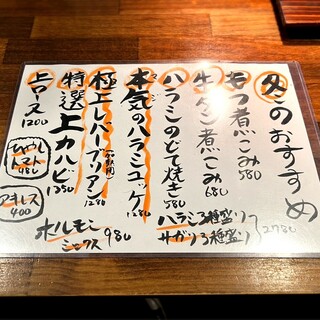 冬のおすすめ
もつ煮こみ 580
牛タン煮こみ 680
ハラミのどて焼き 580
本気のハラミユッケ 1280
マジ
極上レバーブツアン 1280
特選上カルビ 1350
上ロース 1200
ひやし
トマト
480
アキレス
400
ホルモン
ミックス 980
ハラミ3種盛り
サガリ3種盛り
2780